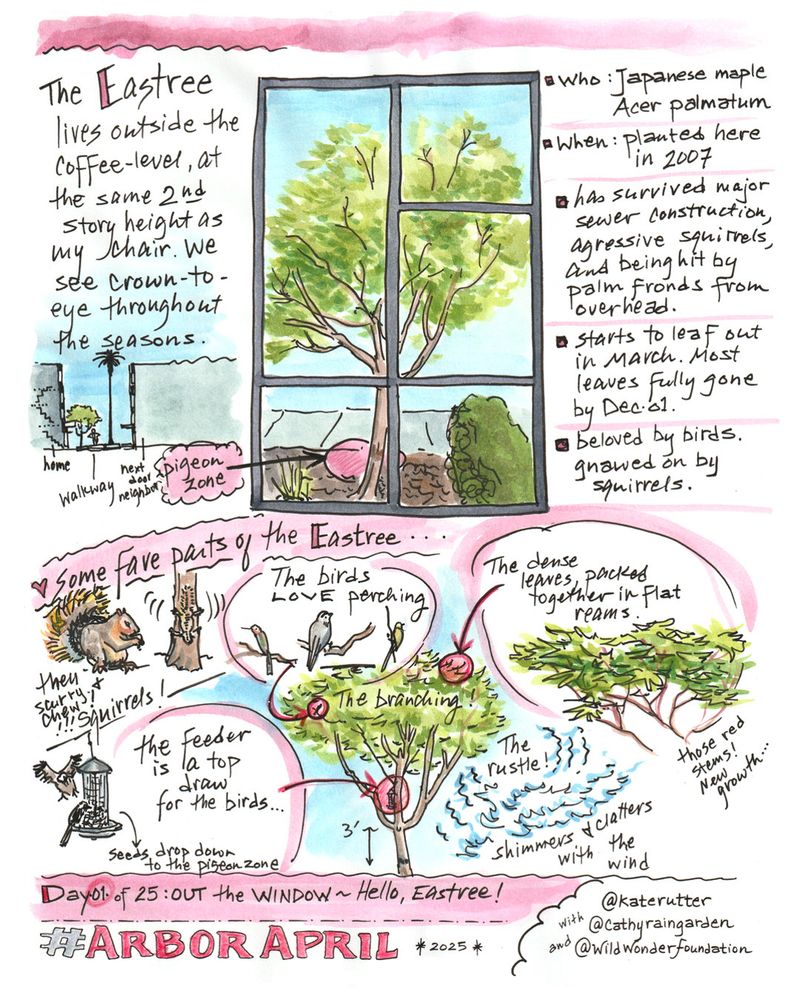 The Eastree
lives outside the
coffee-level, at
the same 2nd
story height as
my chair. We
see crown-to-
eye throughout
the seasons.
home
walkway
next
door
neighbor
pigeon
zone
WHO: Japanese maple
Acer palmatum
When: planted here
in 2007
has survived major
sewer construction,
agressive squirrels,
and being hit by
palm fronds from
overhead.
starts to leaf out
in March. Most
leaves fully gone
by Dec.01.
beloved by birds.
gnawed on by
squirrels.
some fave parts of the Eastree...
they
scurry &
chew!
!!! Squirrels!
The birds
LOVE perching
The dense
leaves, packed
together in flat
reams.
The branching!
those red
stems!
New
growth...
the feeder
is a top
draw
for the birds...
seeds drop down
to the pigeon zone
3'
The
rustle!
shimmers & clatters
with the
wind
Day 01 of 25: OUT the WINDOW ~ Hello, Eastree!
#ARBOR APRIL *2025*
@katerutter
with @cathyraingarden
and @wildwonderfoundation